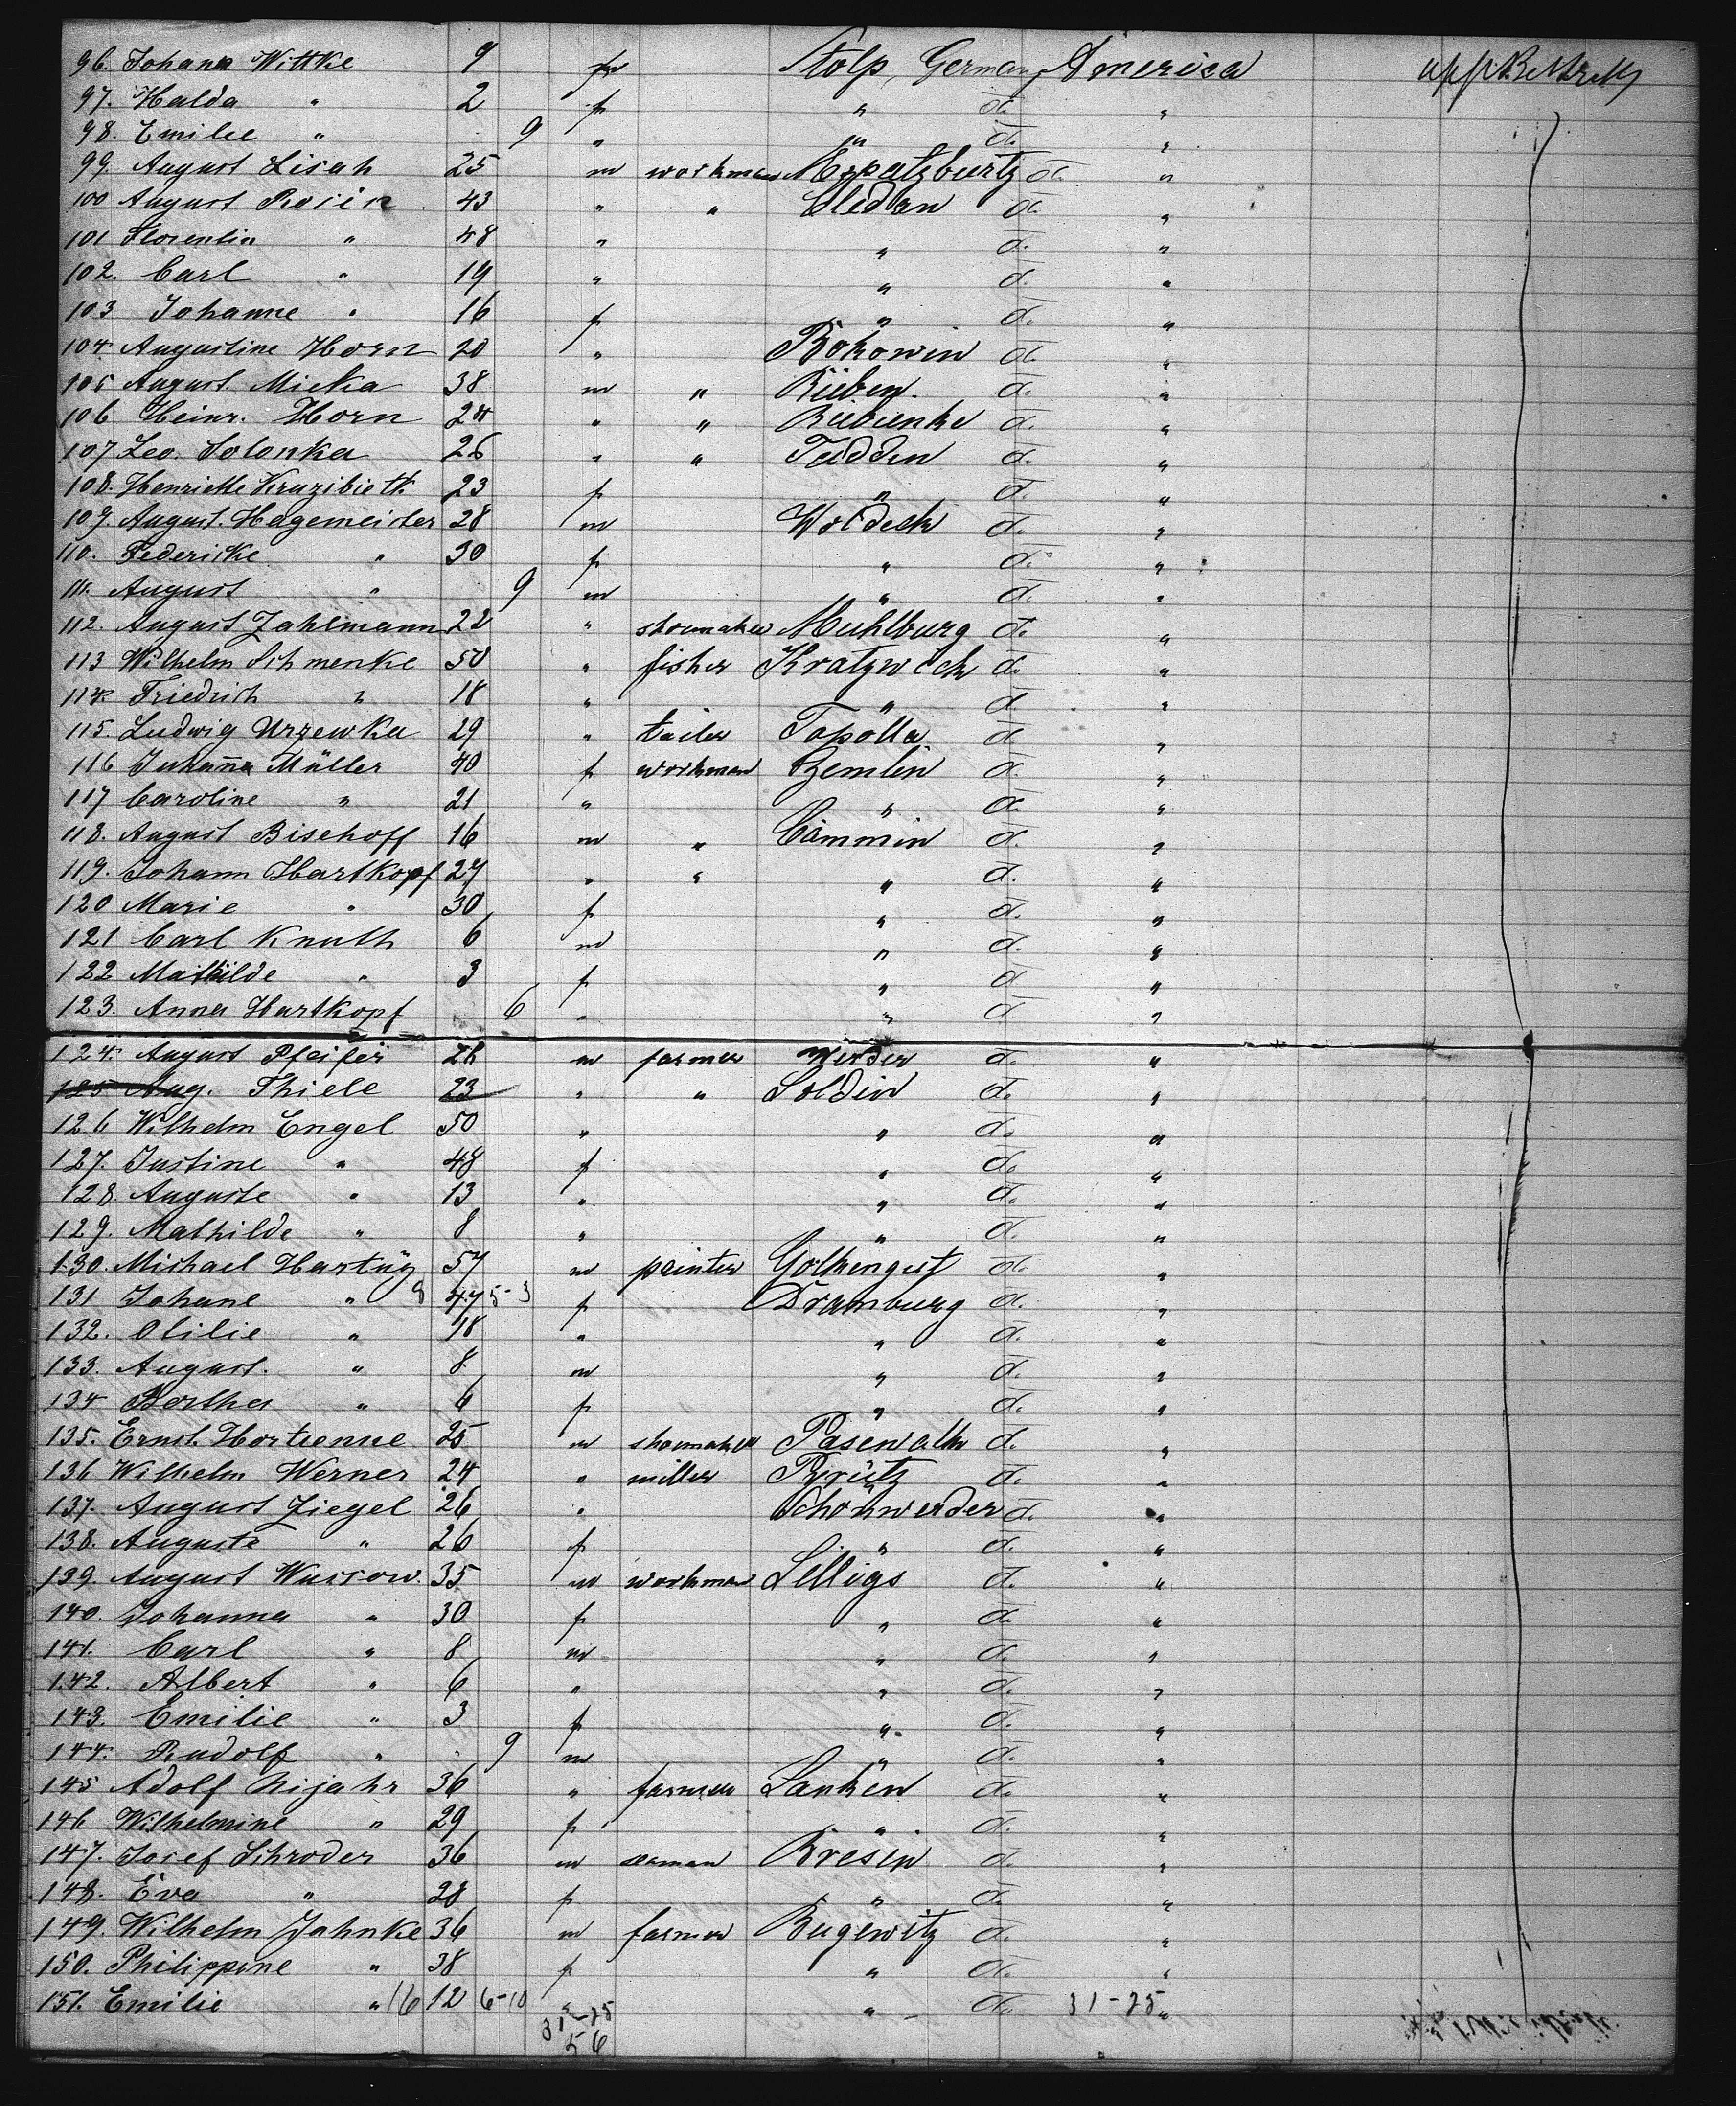 96. Johann Wittke 9 Stolp, Germany America
97. Halda " 2 f " do. "
98. Emilie " 9 " " do. "
99. August Lisah 25 m workman do. "
100 August Rosin 43 " " do. "
101 Florentin " 48 " " do. "
102. Carl " 19 " " do. "
103 Johanne " 16 f " do. "
104. Augustine Horn 20 " Bokowin do. "
105 August. Micka 38 m " do. "
106 Heinr. Horn 24 " " do. "
107 Leo. Solonka 26 " " Tadden do. "
108. Henriette 23 f " do. "
109. August. Hagemeister 28 m Woldeck do. "
110. Federicke " 30 f " do. "
111. August " 9 m " do. "
112. August Zahlmann 22 " shoemaker Mühlburg do. "
113 Wilhelm Schmenke 50 " fisher Kratzwick do. "
114. Friedrich " 18 " " do. "
115. Ludwig Urzewka 29 " tailer Topolla do. "
116 Johanna Müller 40 f workman Zemlin do. "
117 Caroline " 21 " " do. "
118. August Bischoff 16 m " Cammin do. "
119. Johann Hartkopf 27 " " " do. "
120 Marie " 30 f " do. "
121 Carl Knuth 6 m " do. "
122 Mathilde " 3 f " do. "
123. Anna Hartkopf 6 " " do. "
124. August Pfeifer 28 m farmer Werder do. "
125 Aug. Thiele 23 " " Soldin do. "
126 Wilhelm Engel 50 " " do. "
127. Justine " 48 f " do. "
128. Auguste " 13 " " do. "
129. Mathilde " 8 " " do. "
130. Michael Hartüg 57 m painter do. "
131 Johane " 8 47 5-3 f Dramburg do. "
132. Otilie " 18 " " do. "
133. August. " 8 m " do. "
134 Bertha " 6 f " do. "
135. Ernst. 25 m shoemaker Pasewalk do. "
136 Wilhelm Werner 24 " miller do. "
137. August Ziegel 26 " Schönwerder do. "
138. Auguste " 26 f " do. "
139. August Wussow. 35 m workman Selligs do. "
140. Johanna " 30 f " do. "
141. Carl " 8 m " do. "
142. Albert " 6 " " do. "
143. Emilie " 3 f " do. "
144. Rudolf " 9 m " do. "
145 Adolf Nijahr 36 " farmer Lanken do. "
146 Wilhelmine " 29 f " do. "
147. Josef Schroder 36 m seaman Bresin do. "
148. Eva " 28 f " do. "
149. Wilhelm Jahnke 36 m farmer Bugewitz do. "
150. Philippine " 38 f " do. "
151. Emilie " 16 12 6-10 " " do. 31-25 "
31-25
56